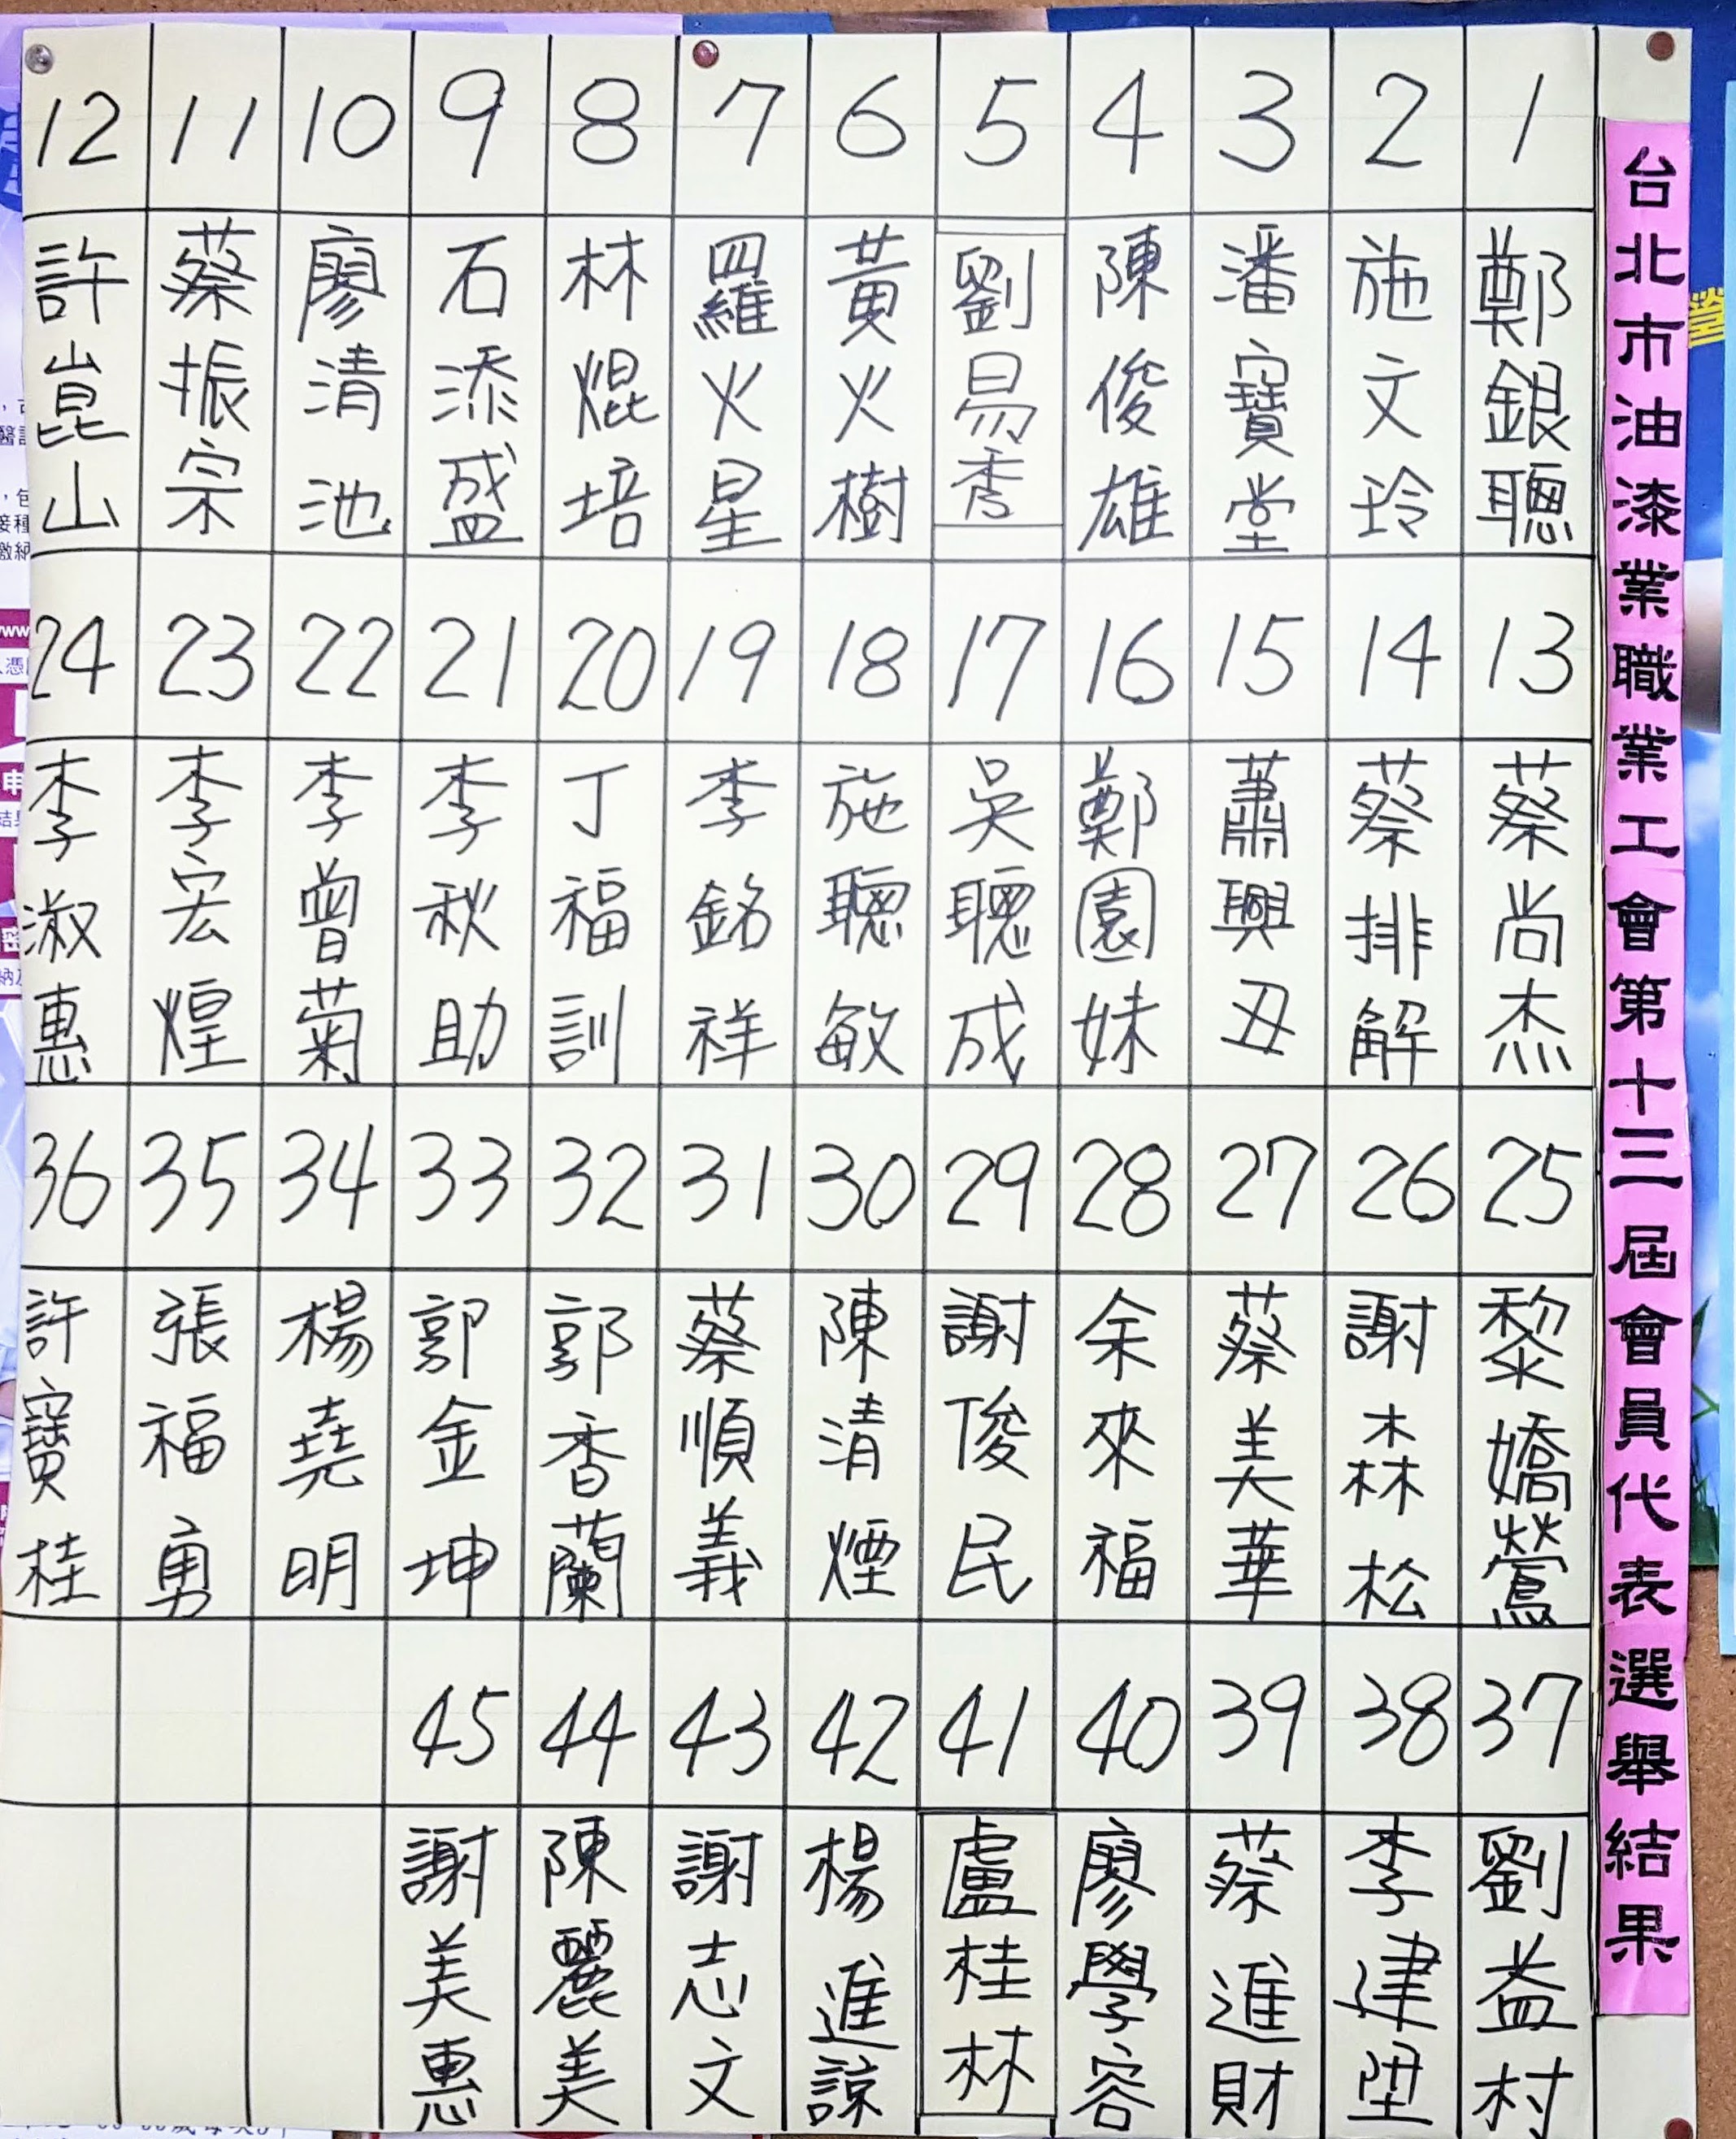 台北市油漆業職業工會第十三屆會員代表選舉結果
1
鄭銀聰
2
施文玲
3
潘寶堂
4
陳俊雄
5
劉易秀
6
黃火樹
7
羅火星
8
林焜培
9
石添盛
10
廖清池
11
蔡振宗
12
許崑山
13
蔡尚杰
14
蔡排解
15
蕭興丑
16
鄭園妹
17
吳聰成
18
施聰敏
19
李銘祥
20
丁福訓
21
李秋助
22
李曾菊
23
李宏煌
24
李淑惠
25
黎嬌鶯
26
謝森松
27
蔡美華
28
余來福
29
謝俊民
30
陳清煙
31
蔡順義
32
郭香蘭
33
郭金坤
34
楊堯明
35
張福勇
36
許寶桂
37
劉益村
38
李建
39
蔡進財
40
廖學容
41
盧桂林
42
楊進諒
43
謝志文
44
陳麗美
45
謝美惠